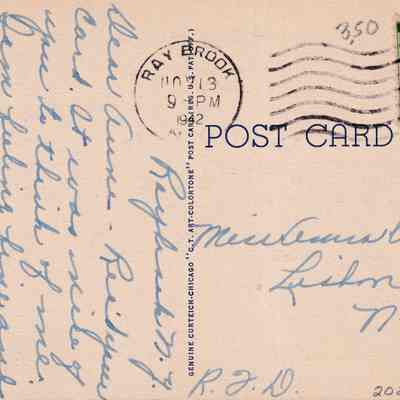 Raybrook N.Y.
Dear Anna - Rec'd your
card. It was nice of
you to think of me.
I'm feeling fine and
GENUINE CURTEICH-CHICAGO "C.T. ART-COLORTONE" POST CARD (REG. U.S. PAT. OFF.)
RAY BROOK
NOV 13
9 PM
1942
N.Y.
3,50
POST CARD
Miss Anna
Lisbon
N
R.F.D.
202